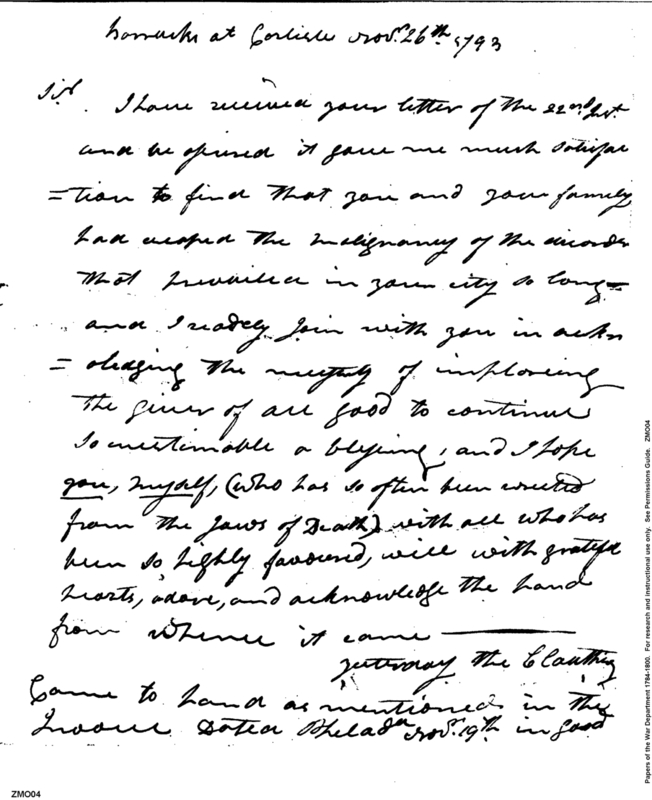 barracks at Carlisle Novr. 26th 1793
Sir. I have received your letter of the 22nd Inst.
and be assured it gave me much satisfac
=tion to find that you and your family
had escaped the malignancy of the disorder
that prevailed in your city so long=
and I readely Join with you in ackn
=oledging the necessity of imploreing
the giver of all good to continue
so inestimable a blessing, and I hope
you, myself, (who has so often been rescued
from the Jaws of Death) with all who has
been so highly favoured, will with grateful
hearts, adore, and acknowledge the hand
from whence it came
yesterday the Cloathing
Came to hand as mentioned in the
Invoice Dated Philada Novr. 19th in good
ZMO04
Papers of the War Department 1784-1800. For research and instructional use only. See Permissions Guide. ZMO04